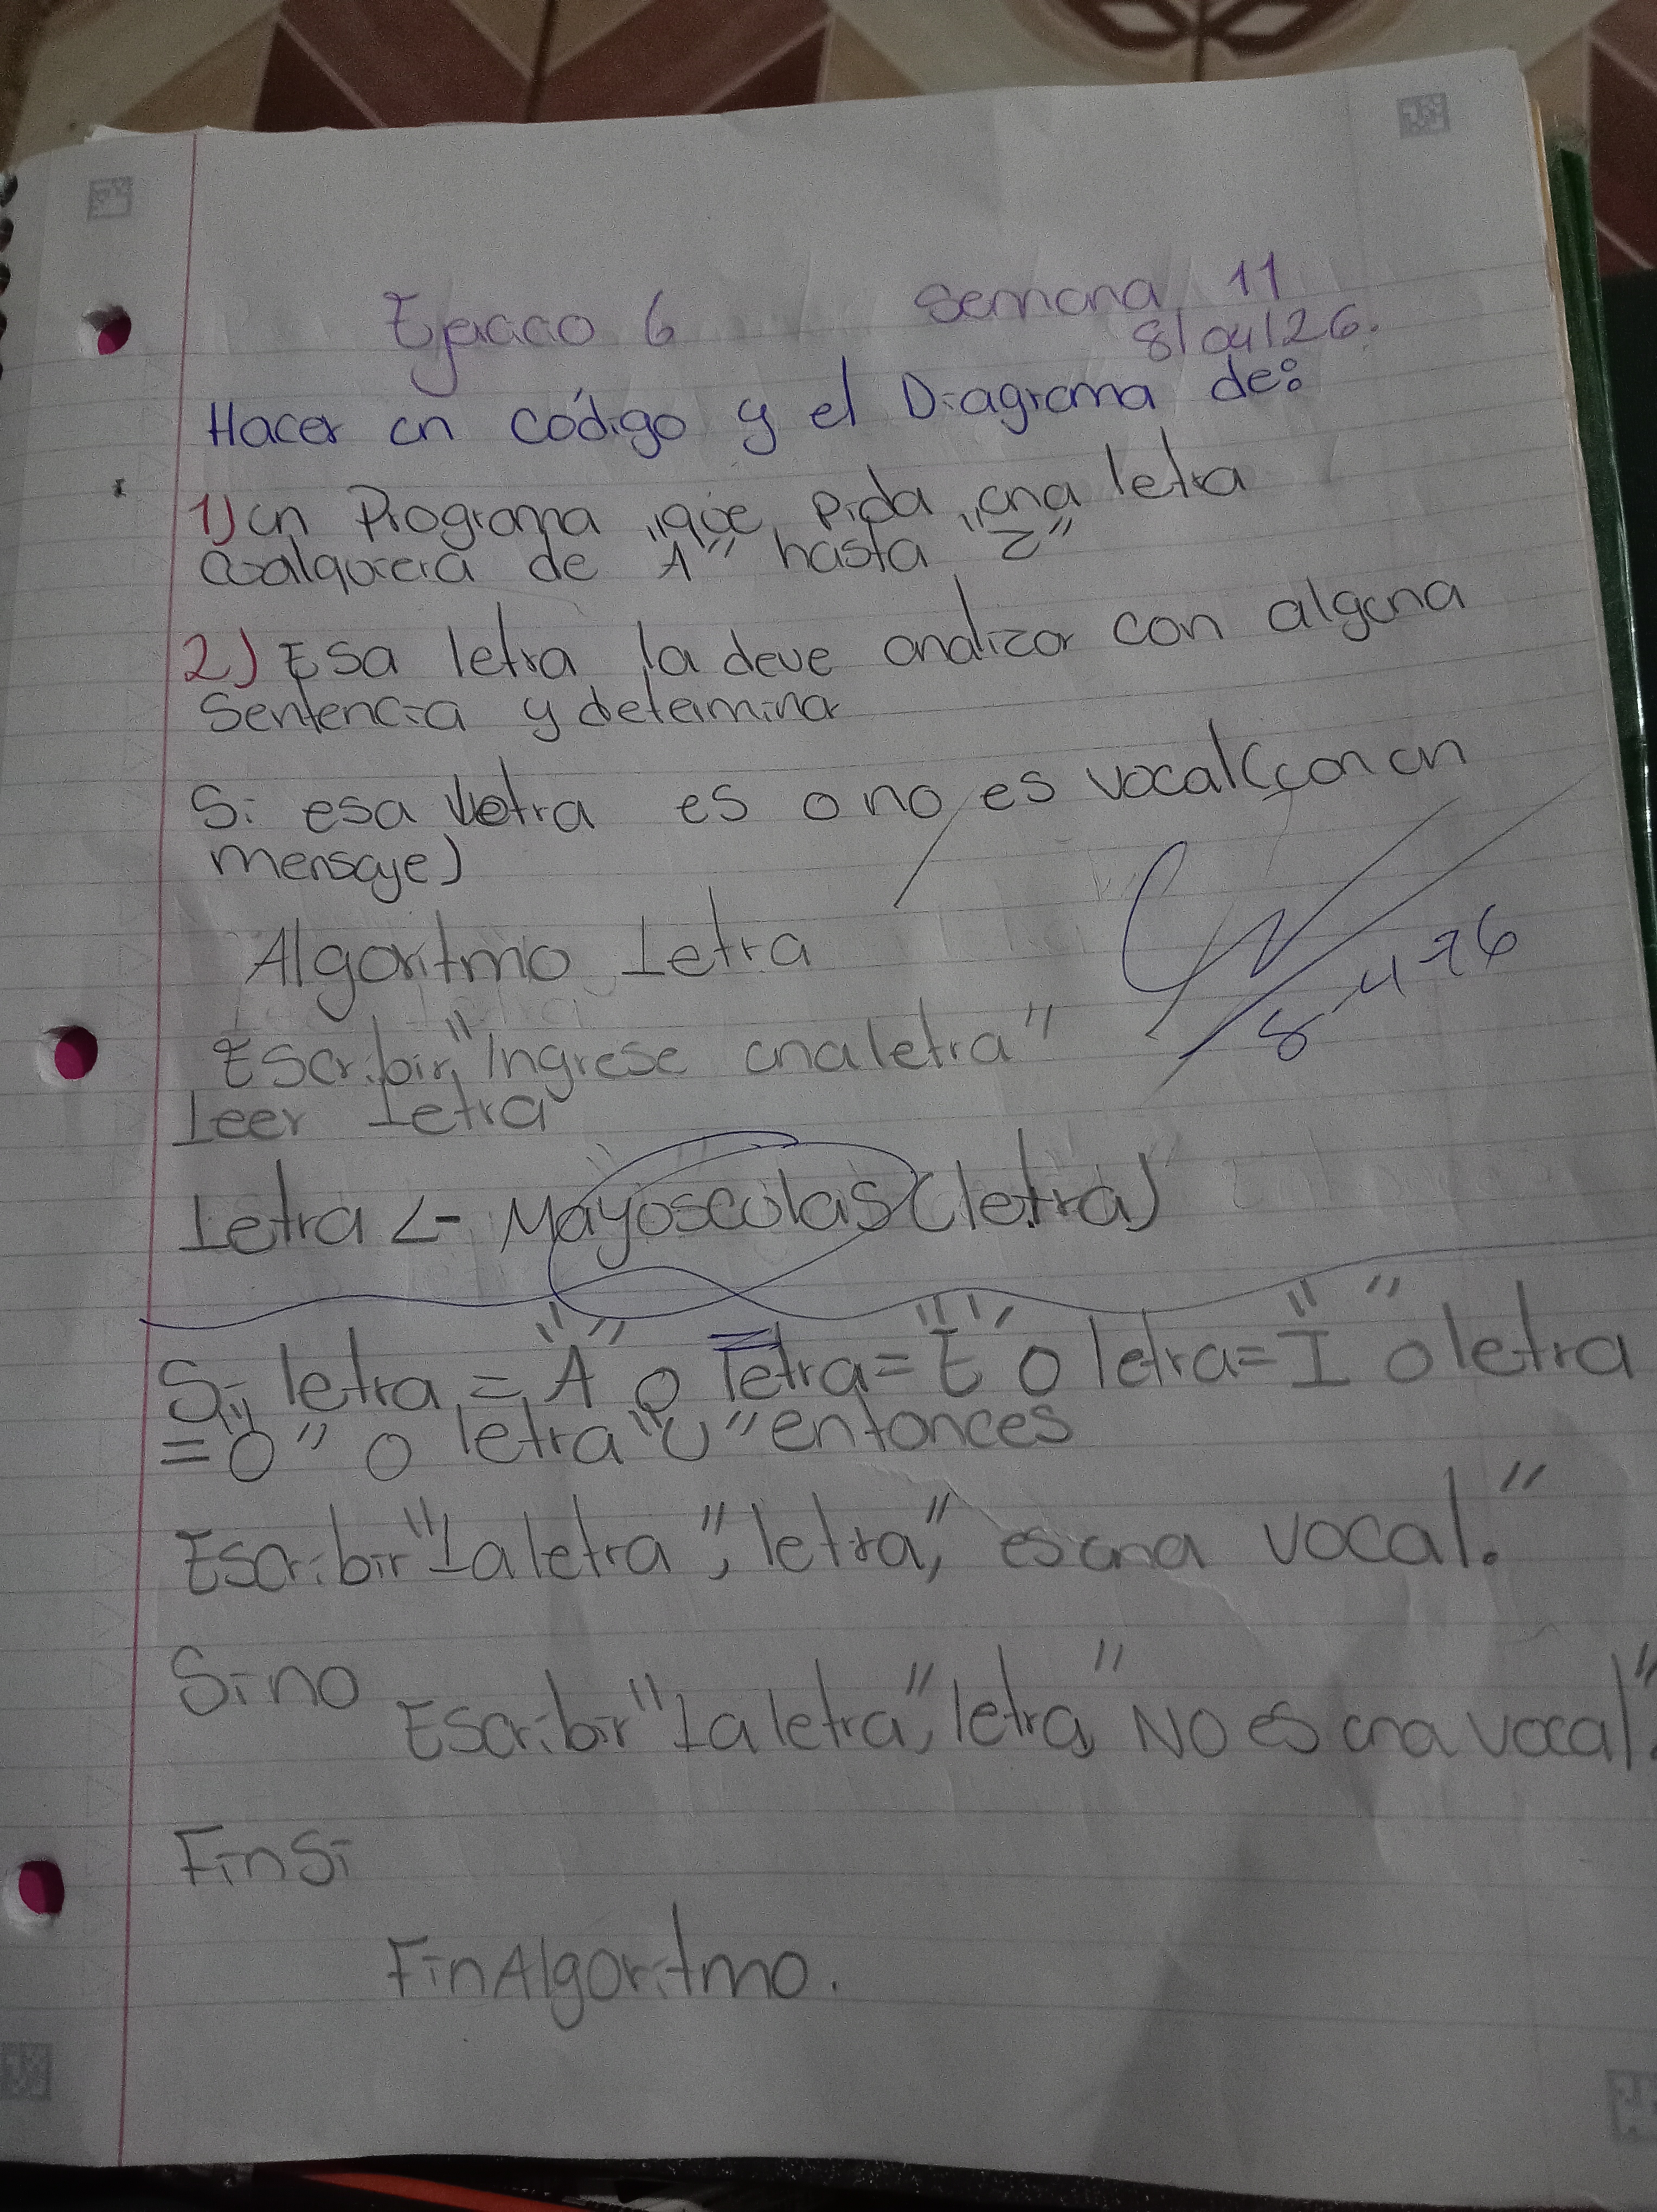 Ejercicio 6 Semana 11
8/04/26.
Hacer un código y el Diagrama de:
1) un Programa que pida una letra
cualquiera de "A" hasta "Z"
2) Esa letra la deve analizar con alguna
Sentencia y determinar
Si esa letra es o no es vocal (con un
mensaje)
Algoritmo Letra
8-4-26
Escribir "Ingrese una letra"
Leer Letra
Letra <- Mayusculas (letra)
Si letra = "A" o letra = "E" o letra = "I" o letra
= "O" o letra "U" entonces
Escribir "La letra", letra, "es una vocal."
Sino
Escribir "La letra", letra "NO es una vocal".
FinSi
FinAlgoritmo.